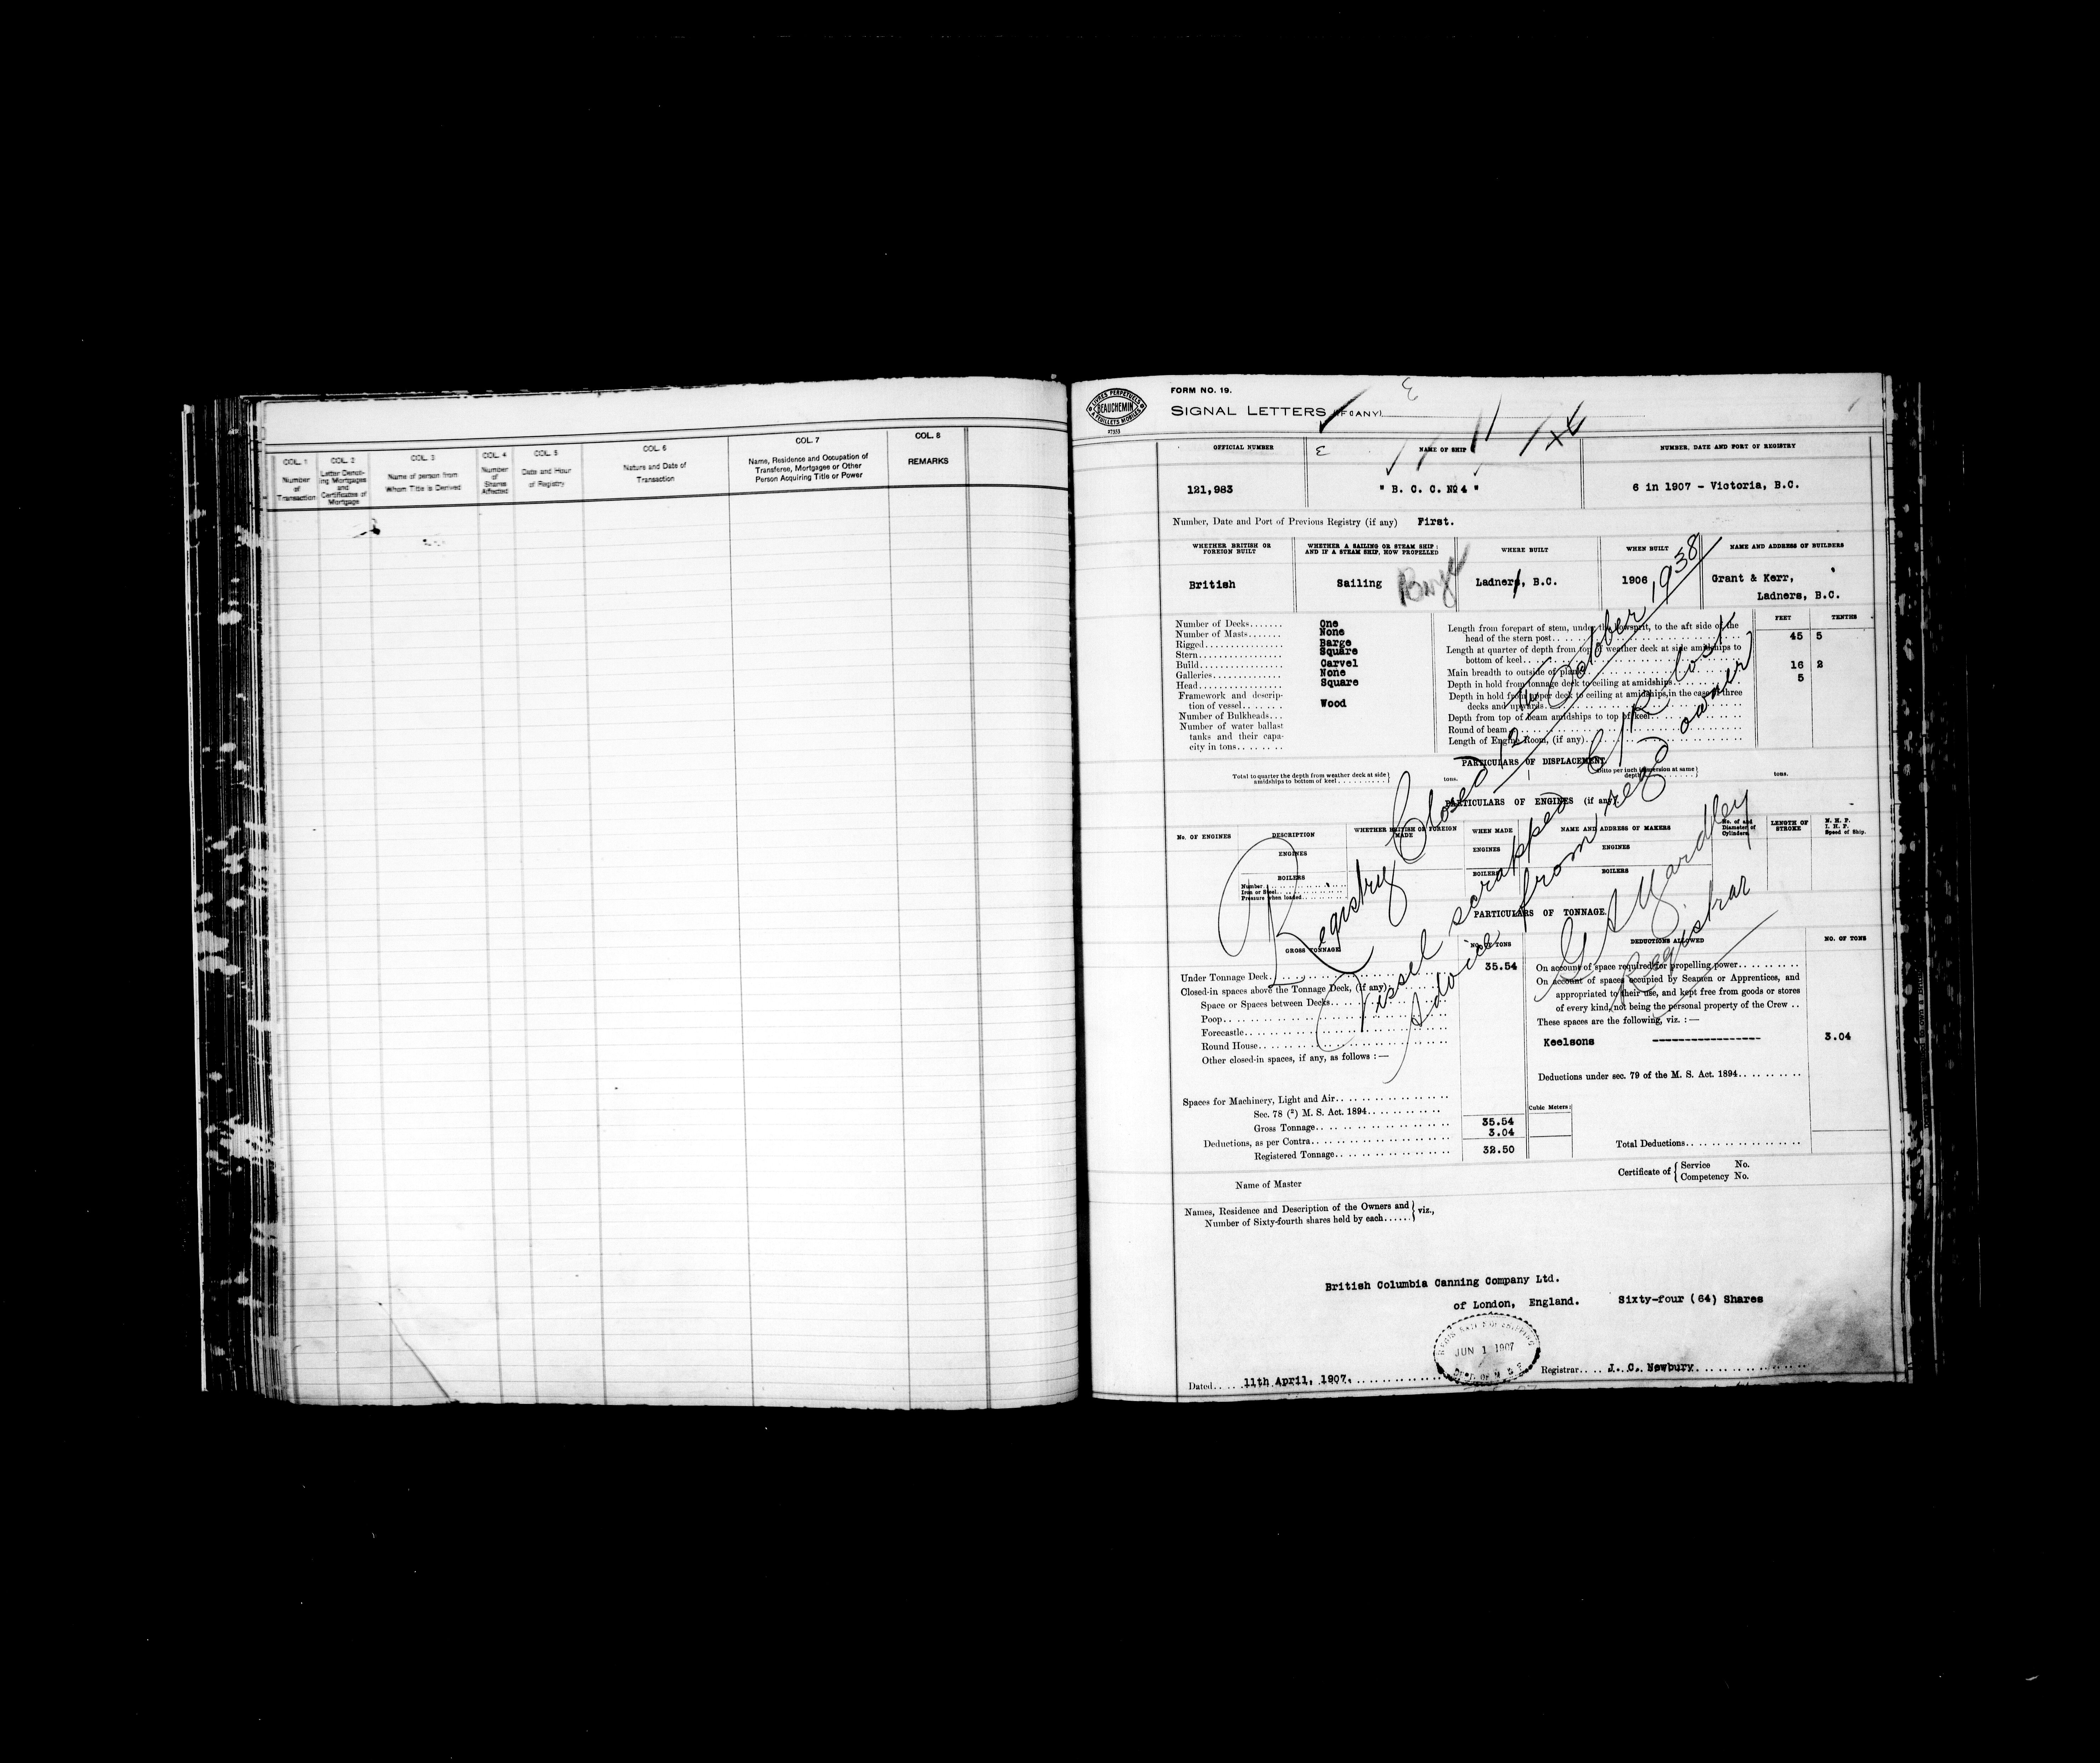 COL. 1
Number
of
Transaction
COL. 2
Letter Denot-
ing Mortgages
and
Certificates of
Mortgage
COL. 3
Name of person from
Whom Title is Derived
COL. 4
Number
of
Shares
Affected
COL. 5
Date and Hour
of Registry
COL. 6
Nature and Date of
Transaction
COL. 7
Name, Residence and Occupation of
Transferee, Mortgagee or Other
Person Acquiring Title or Power
COL. 8
REMARKS
LIVRES PERPETUELS
BEAUCHEMIN
A FEUILLETS MOBILES
27353
FORM NO. 19.
SIGNAL LETTERS (IF ANY)
OFFICIAL NUMBER
NAME OF SHIP
NUMBER, DATE AND PORT OF REGISTRY
121,983
" B. C. C. No 4 "
6 in 1907 - Victoria, B.C.
Number, Date and Port of Previous Registry (if any) First.
WHETHER BRITISH OR
FOREIGN BUILT
WHETHER A SAILING OR STEAM SHIP;
AND IF A STEAM SHIP, HOW PROPELLED
WHERE BUILT
WHEN BUILT
NAME AND ADDRESS OF BUILDERS
British
Sailing
Barge
Ladners, B.C.
1906
Grant & Kerr,
Ladners, B.C.
FEET TENTHS
Number of Decks....... One
Number of Masts....... None
Rigged................ Barge
Stern................. Square
Build................. Carvel
Galleries.............. None
Head.................. Square
Framework and descrip-
tion of vessel........ Wood
Number of Bulkheads...
Number of water ballast
tanks and their capa-
city in tons........
Length from forepart of stem, under the bowsprit, to the aft side of the
head of the stern post.......... 45 5
Length at quarter of depth from top of weather deck at side amidships to
bottom of keel..........
Main breadth to outside of plank.......... 16 2
Depth in hold from tonnage deck to ceiling at amidships.......... 5
Depth in hold from upper deck to ceiling at amidships, in the case of three
decks and upwards..........
Depth from top of beam amidships to top of keel..........
Round of beam..........
Length of Engine Room, (if any)..........
PARTICULARS OF DISPLACEMENT
Total to quarter the depth from weather deck at side
amidships to bottom of keel.......... tons.
Ditto per inch immersion at same
depth.......... tons.
PARTICULARS OF ENGINES (if any).
No. OF ENGINES
DESCRIPTION
WHETHER BRITISH OR FOREIGN
MADE
WHEN MADE
NAME AND ADDRESS OF MAKERS
No. of and
Diameter of
Cylinders
LENGTH OF
STROKE
N. H. P.
I. H. P.
Speed of Ship.
ENGINES
ENGINES
ENGINES
BOILERS
BOILERS
BOILERS
Number..........
Iron or Steel..........
Pressure when loaded..........
Registry Closed 12th October 1938
Vessel scrapped C/R lost
Advice from reg'd owner
G A Yardley
Registrar
PARTICULARS OF TONNAGE.
GROSS TONNAGE
NO. OF TONS
DEDUCTIONS ALLOWED
NO. OF TONS
Under Tonnage Deck.......... 35.54
Closed-in spaces above the Tonnage Deck, (if any)..........
Space or Spaces between Decks..........
Poop..........
Forecastle..........
Round House..........
Other closed-in spaces, if any, as follows :—
Spaces for Machinery, Light and Air..........
Sec. 78 (2) M. S. Act. 1894..........
Gross Tonnage.......... 35.54
Deductions, as per Contra.......... 3.04
Registered Tonnage.......... 32.50
Cubic Meters:
On account of space required for propelling power..........
On account of spaces occupied by Seamen or Apprentices, and
appropriated to their use, and kept free from goods or stores
of every kind, not being the personal property of the Crew ..
These spaces are the following, viz. :—
Keelsons ----------------- 3.04
Deductions under sec. 79 of the M. S. Act. 1894..........
Total Deductions..........
Name of Master
Certificate of { Service No.
Competency No.
Names, Residence and Description of the Owners and
Number of Sixty-fourth shares held by each...... } viz.,
British Columbia Canning Company Ltd.
of London, England. Sixty-four (64) Shares
JUN 1 1907
Dated.... 11th April, 1907.
Registrar.... J. C. Newbury